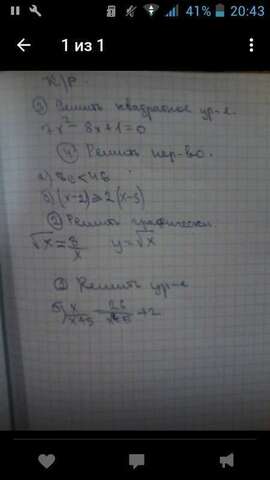 41% 20:43
1 из 1
К/Р.
③ Решить квадратное ур-е.
7x² - 8x + 1 = 0
④ Решить нер-во.
а) < 48
б) (x-2) ≥ 2(x-3)
Решить графически.
√x = x y = √x
Решить ур-е
x 26
x+5 + 2